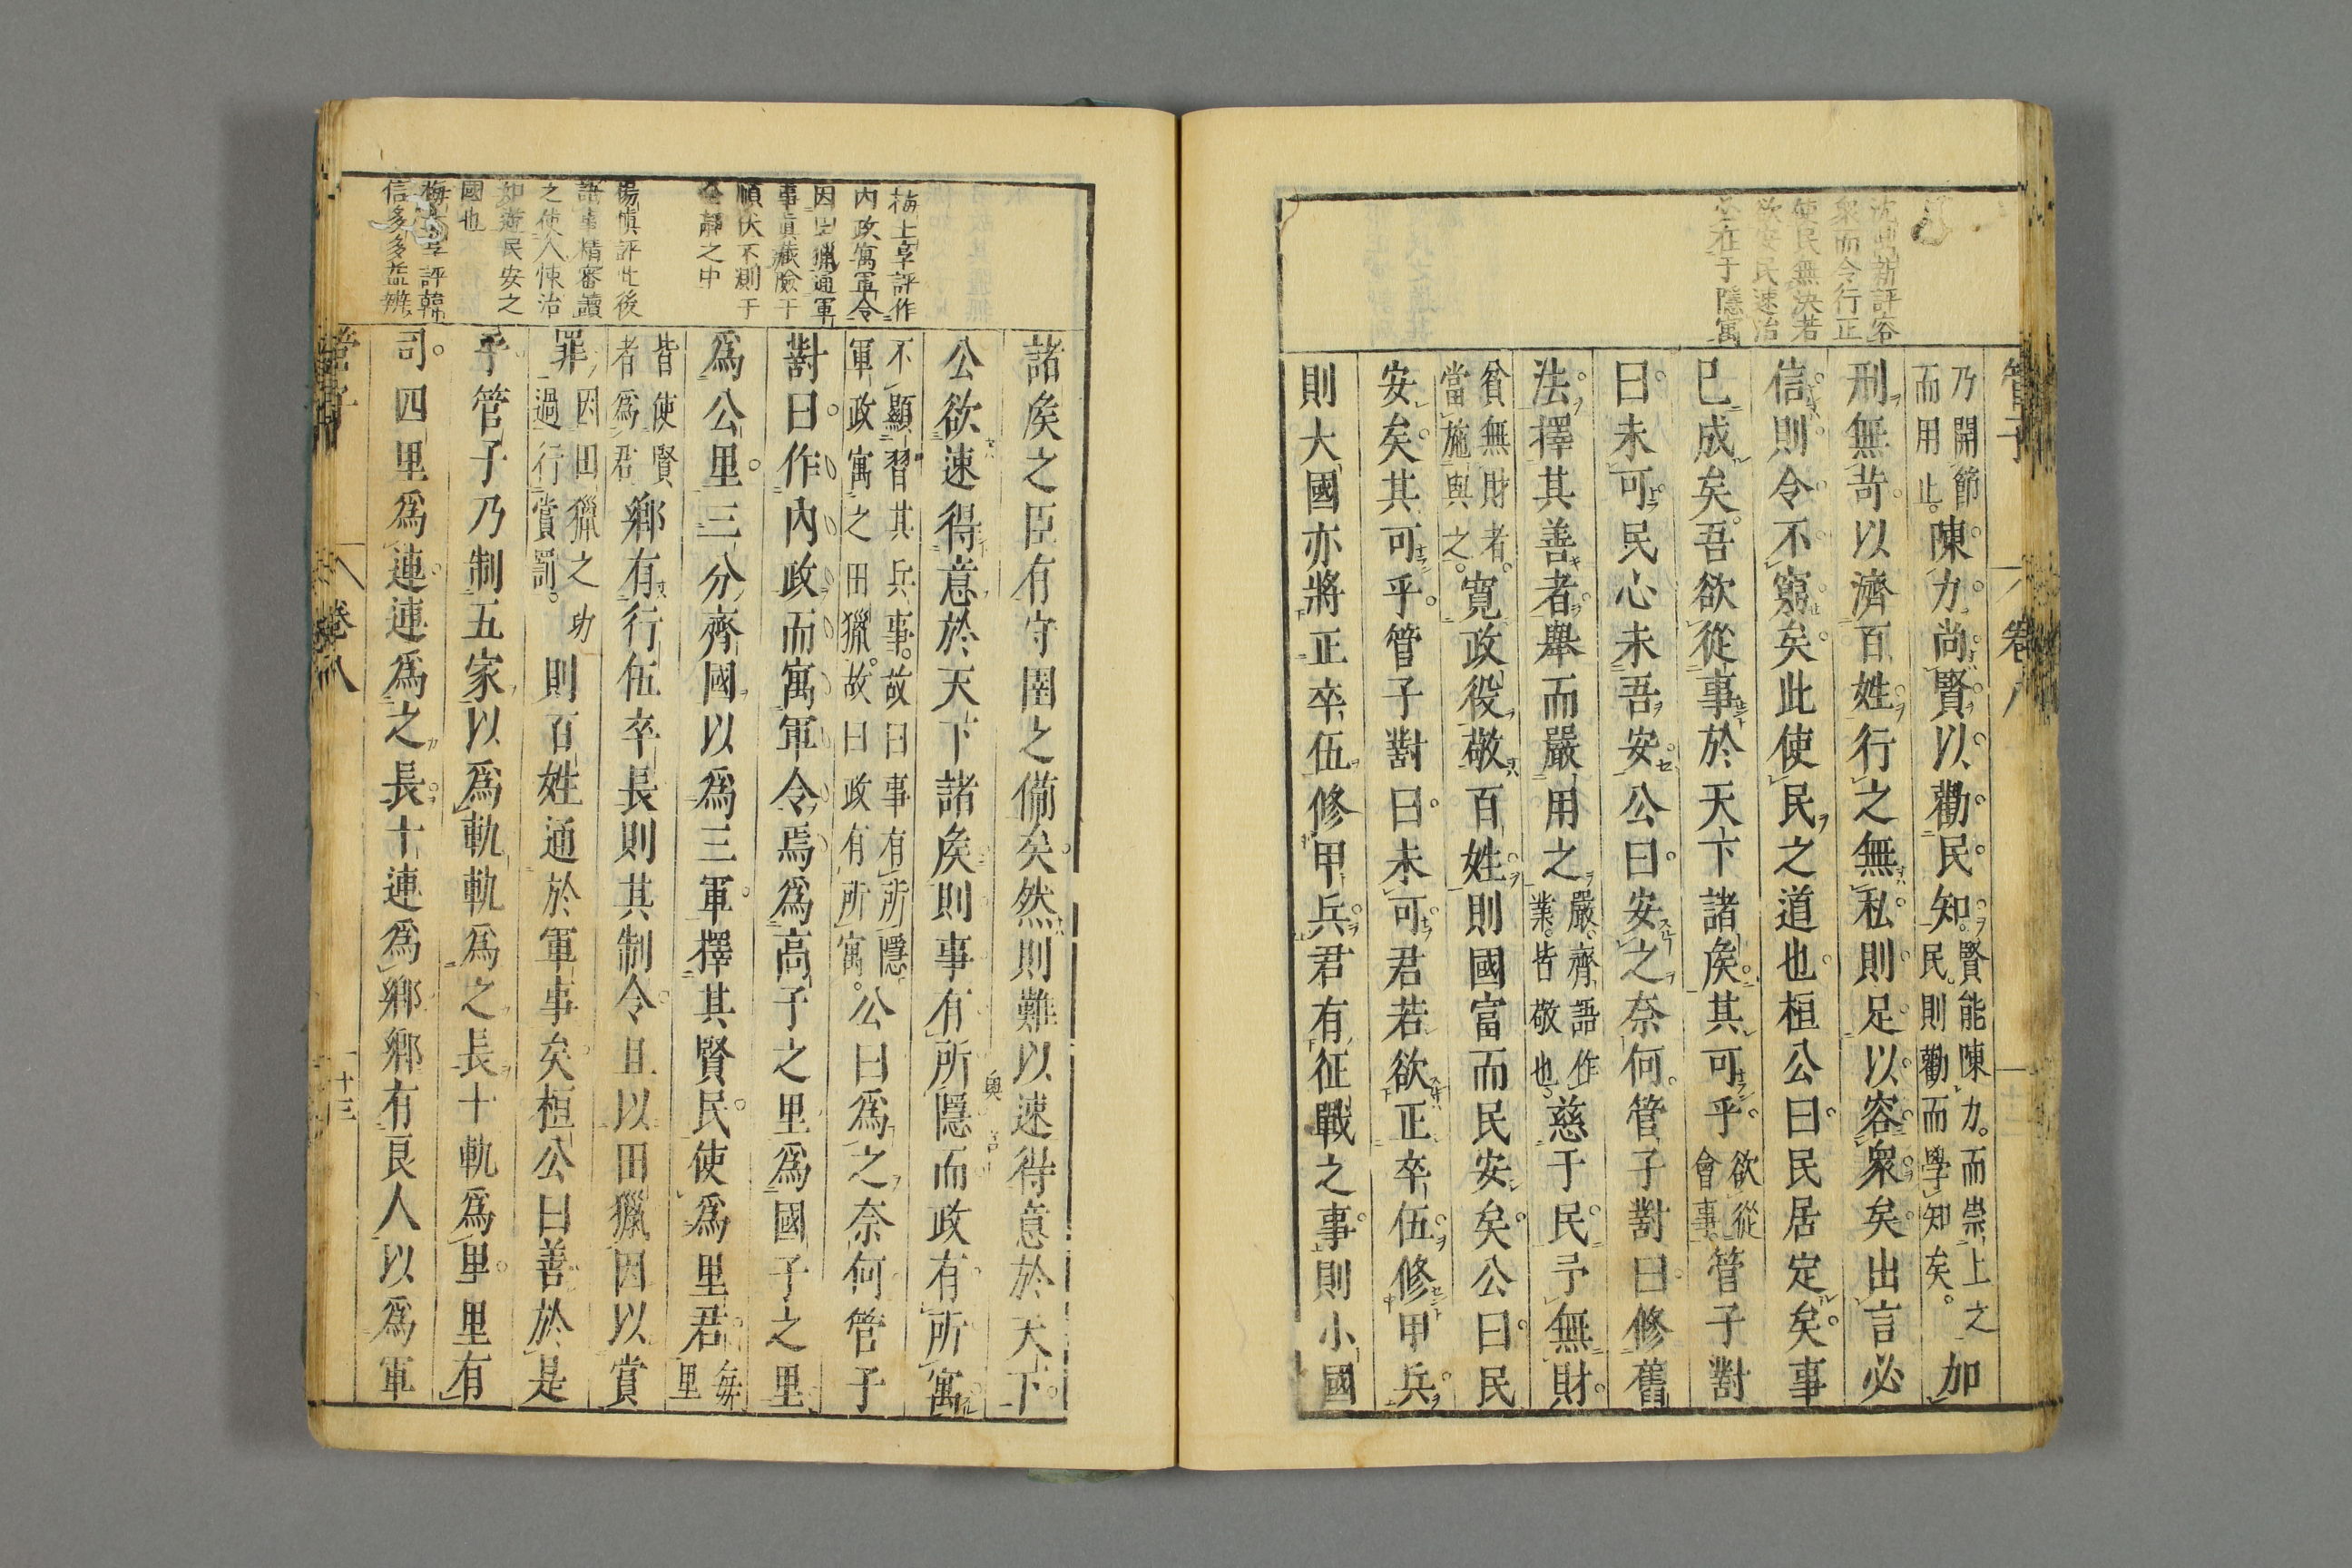 沈鼎新評容
衆而令行正
使民無決若
欲安民速治
在于隱寓
管子
卷八
乃開節
而用止。陳力尚賢以勸民知。賢能陳力。而崇上之
民。則勸而學知矣。加
刑無苛以濟百姓行之無私則足以容衆矣出言必
信則令不窮矣此使民之道也桓公曰民居定矣事
已成矣吾欲從事於天下諸矦其可乎欲從
會事。管子對
曰未可民心未吾安公曰安之奈何管子對曰修舊
法擇其善者舉而嚴用之嚴齊語作
業。皆敬也。慈于民予無財
貧無財者。
當施與之。寬政役敬百姓則國富而民安矣公曰民
安矣其可乎管子對曰未可君若欲正卒伍修甲兵
則大國亦將正卒伍修甲兵君有征戰之事則小國
梅士享評作
內政寓軍令
因田獵通軍
事眞藏險于
順伏不測于
至靜之中
楊慎評此後
語事精審讀
之使人悚治
如遊民安之
國也
評韓
信多多益辨
諸矦之臣有守圉之備矣然則難以速得意於天下
公欲速得意於天下諸矦則事有所隱而政有所寓
不顯習其兵事。故曰事有所隱。
軍政寓之田獵。故曰政有所寓。公曰爲之奈何管子
對曰作內政而寓軍令焉爲高子之里爲國子之里
爲公里三分齊國以爲三軍擇其賢民使爲里君每
里
皆使賢
者爲君鄉有行伍卒長則其制令且以田獵因以賞
罪因田獵之功
過行賞罰。則百姓通於軍事矣桓公曰善於是
乎管子乃制五家以爲軌軌爲之長十軌爲里里有
司四里爲連連爲之長十連爲鄉鄉有良人以爲軍
管子
卷八
十三